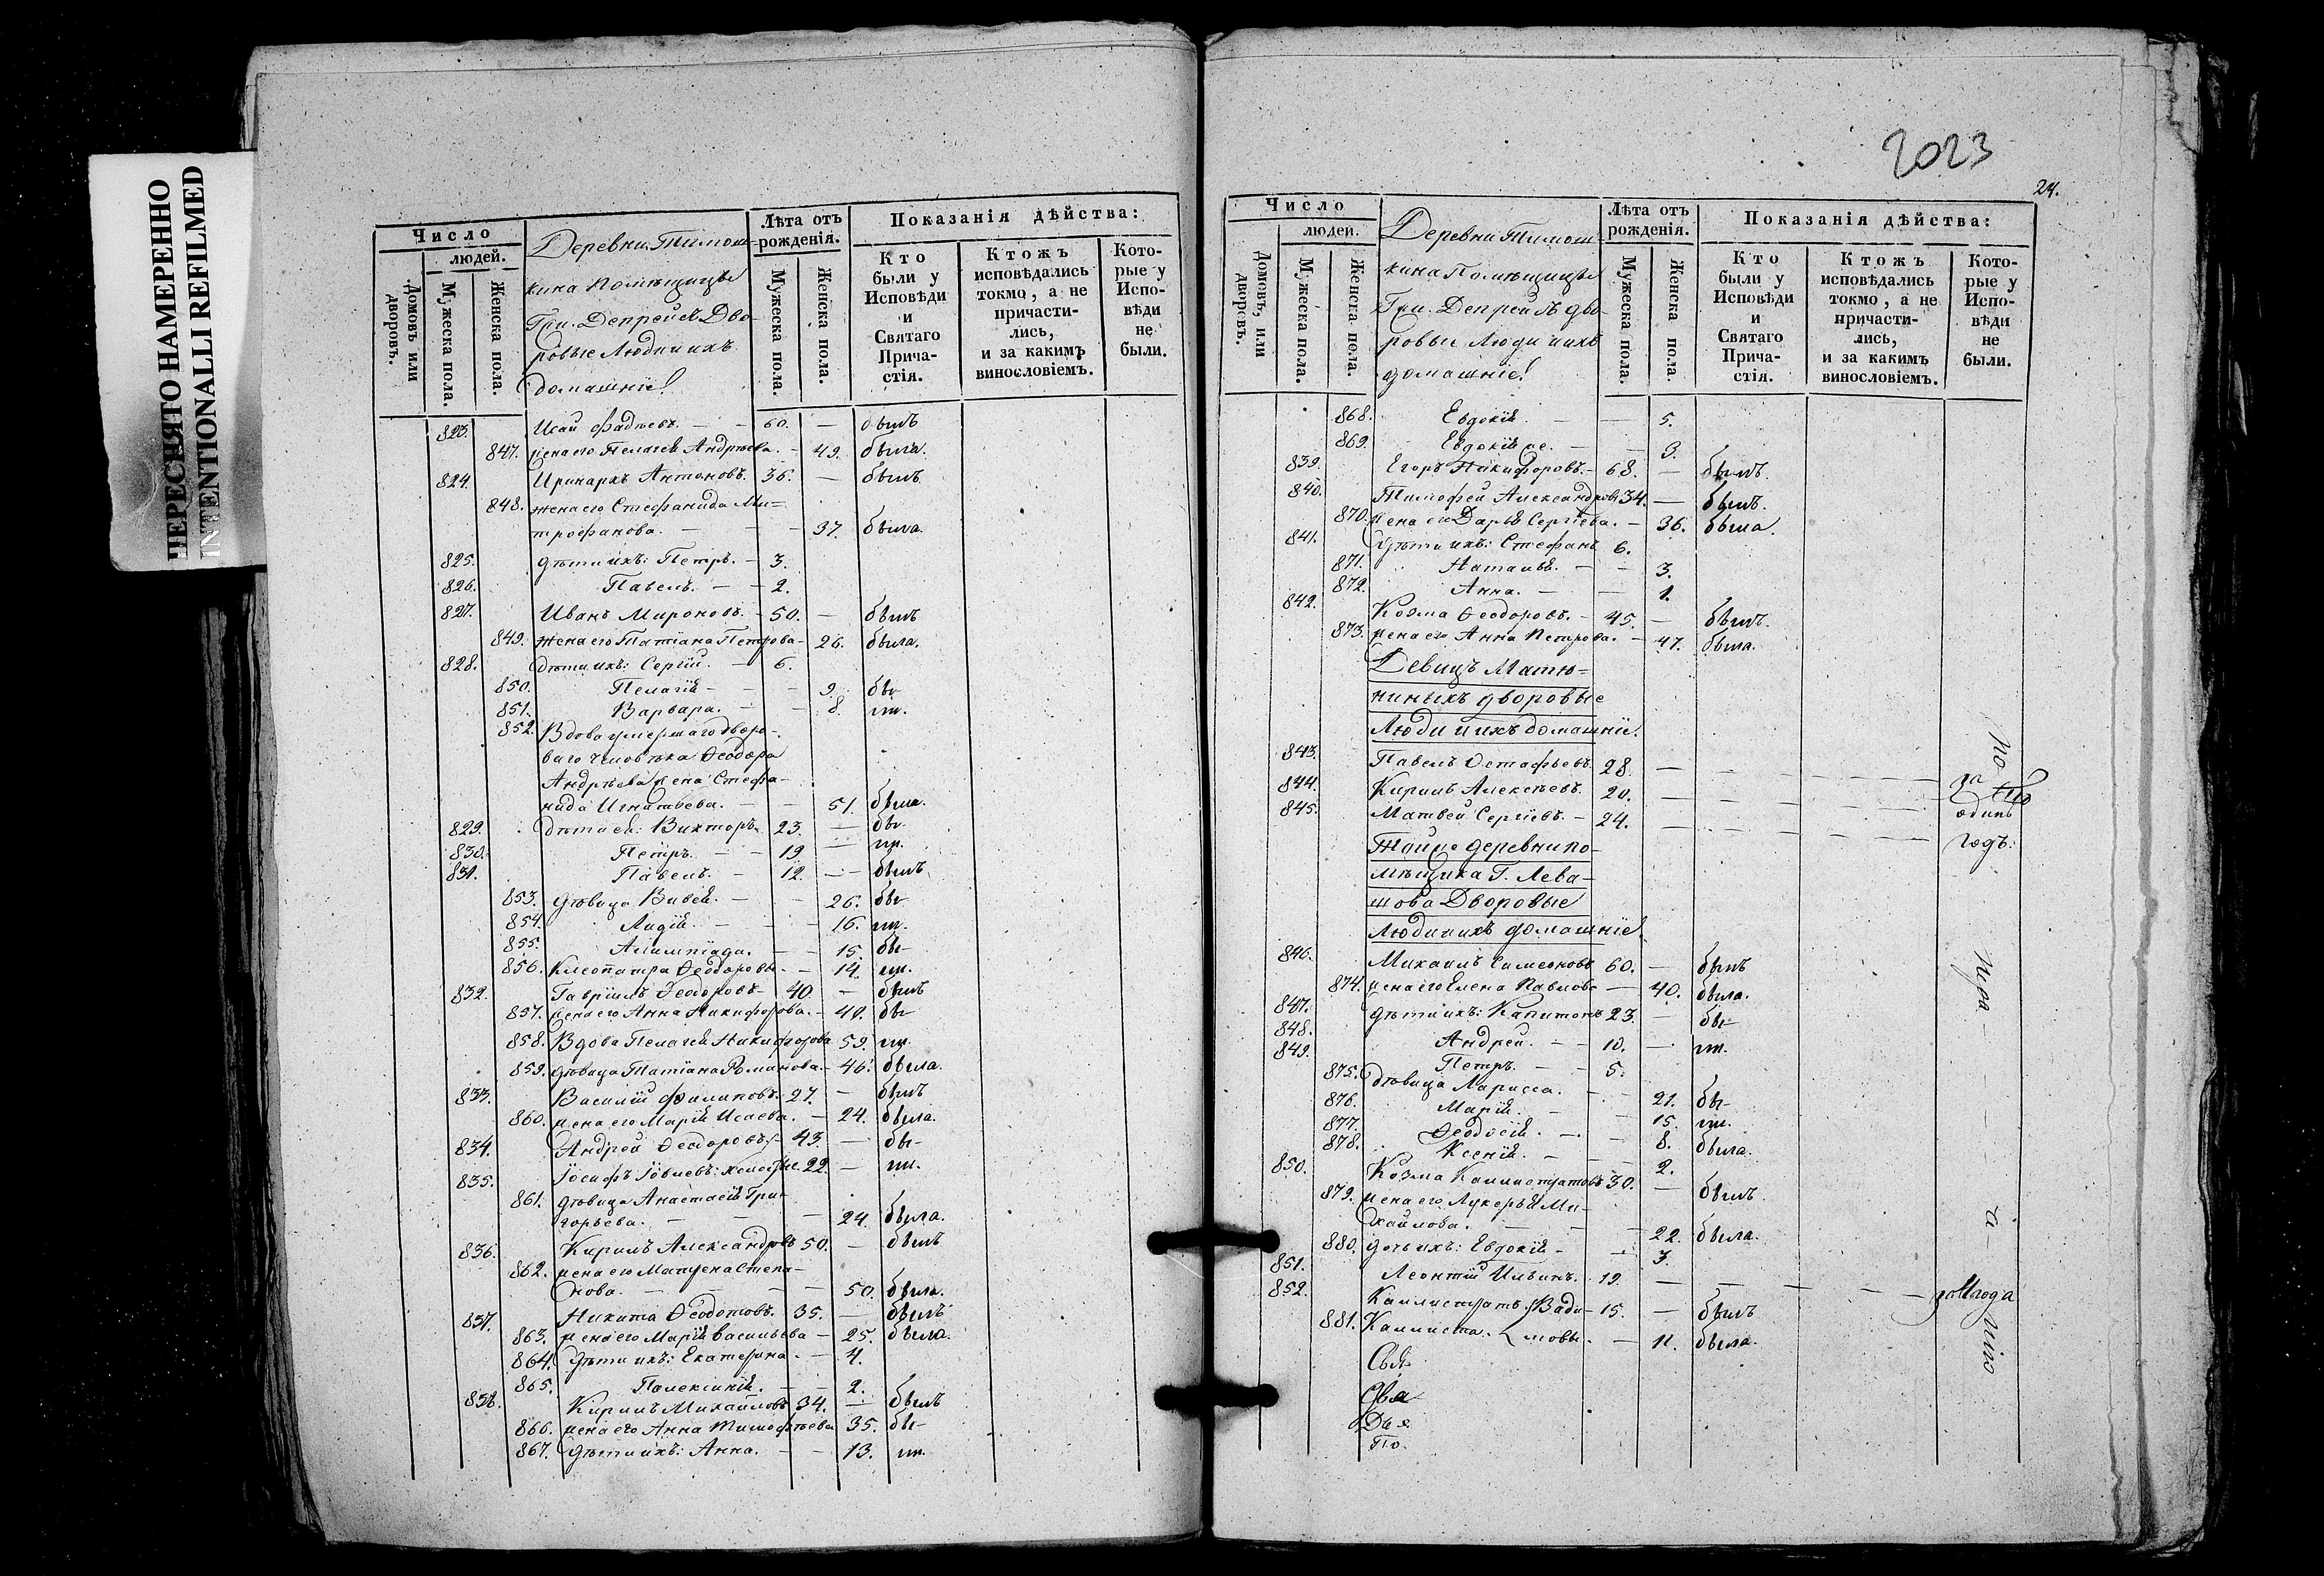 ПЕРЕСНЯТО НАМЕРЕННО
INTENTIONALLI REFILMED
Число
людей.
Домовъ или дворовъ.
Мужеска пола.
Женска пола.
Деревни Тимош-
кина Помѣщицы
Гри. Депрейсъ Дво-
ровые Люди и ихъ
домашніе
Лѣта отъ рожденія.
Мужеска пола.
Женска пола.
Показанія дѣйства:
Кто были у Исповѣди и Святаго Прича-стія.
Ктожъ исповѣдались токмо, а не причасти-лись, и за какимъ винословіемъ.
Кото-рые у Испо-вѣди не были.
823. Исай Фадѣевъ. 60. — былъ
847. жена его Пелагея Андрѣева. 49. была.
824. Иринархъ Антоновъ. 36. — былъ
848. жена его Стефанида Ми-
трофанова. 37. была
825. дѣти ихъ: Петръ. 3.
826. Павелъ. 2.
827. Иванъ Мироновъ. 50. — былъ
849. жена его Татіана Петрова 26. была.
828. дѣти ихъ: Сергій. 6.
850. Пелагія 9. бы-
851. Варвара. 8. ли.
852. Вдова умершаго дворо-
ваго человѣка Ѳеодора
Андрѣева жена Стефа-
нида Игнатьева. 51. была.
829. дѣти ея: Викторъ 23. — бы-
830. Петръ. 19 — ли.
831. Павелъ. 12. — былъ
853. дѣвица Вивея. 26. бы-
854. Лидія. 16. ли.
855. Алимпіада. 15. бы-
856. Клеопатра Ѳеодоровы. 14. ли.
832. Гавріилъ Ѳеодоровъ 40. — былъ
857. жена его Анна Никифорова. 40. бы-
858. Вдова Пелагея Никифорова 59. ли.
859. дѣвица Татіана Романова. 46. была.
833. Василій Филиповъ. 27. — былъ
860. жена его Марія Исаева. 24. была.
834. Андрей Ѳеодоровъ 43. — бы-
835. Іосифъ Іовлевъ: 22. — ли.
861. дѣвица Анастасія Гри-
горьева. 24. была.
836. Кирилъ Александровъ 50. — былъ
862. жена его Матрена Степа-
нова. 50. была.
837. Никита Ѳеодотовъ. 35. — былъ
863. жена его Марія Васильева 25. была.
864. Дѣти ихъ: Екатерина. 4.
865. 2.
838. Кирилъ Михайловъ 34. — былъ
866. жена его Анна Тимофѣева 35. бы-
867. Дѣти ихъ: Анна. 13. ли.
2023
24.
Число
людей.
Домовъ, или дворовъ.
Мужеска пола.
Женска пола.
Деревни Тимош-
кина Помѣщицы
Гри. Депрейсъ дво-
ровые Люди и ихъ
домашніе
Лѣта отъ рожденія.
Мужеска пола.
Женска пола.
Показанія дѣйства:
Кто были у Исповѣди и Святаго Прича-стія.
Ктожъ исповѣдались токмо, а не причасти-лись, и за какимъ винословіемъ.
Кото-рые у Испо-вѣди не были.
868. Евдокія — 5.
869. Евдокія же. — 3.
839. Егоръ Никифоровъ. 68. — былъ.
840. Тимофей Александровъ 34. — былъ.
870. жена его Дарья Сергіева. 36. была.
841. Дѣти ихъ: Стефанъ 6.
871. Наталья. 3.
872. Анна. 1.
842. Козма Ѳеодоровъ. 45. — былъ.
873. жена его Анна Петрова. 47. была.
Девицъ Матю-
ниныхъ дворовые
Люди и ихъ домашніе.
843. Павелъ Остафьевъ. 28. — за
844. Кирилъ Алексѣевъ. 20. — одинъ
845. Матвей Сергіевъ. 24. — годъ.
Тойже деревни по-
мѣщика Г. Лева-
шова Дворовые
Люди и ихъ домашніе
846. Михаилъ Симеоновъ 60. — былъ
874. жена его Елена Павлова 40. была.
847. Дѣти ихъ: Капитонъ 23. — бы-
848. Андрей. 10. — ли.
849. Петръ. 5.
875. дѣвица Ларисса. 21. бы-
876. Марія. 15. ли.
877. Ѳеодосія. 8. была.
878. Ксенія. 2.
850. Козма Каллистратовъ 30. — былъ
879. жена его Лукерья Ми-
хайлова. 22. была.
880. дочь ихъ: Евдокія 3.
851. Леонтій Ильинъ. 19. — года
852. Каллистратъ Вади- 15. — былъ
881. Каллиста. мовы. 11. была.
По.